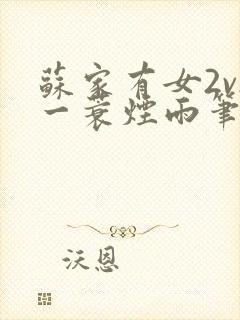 蘇家有女2v
一蓑煙雨筆
沃恩